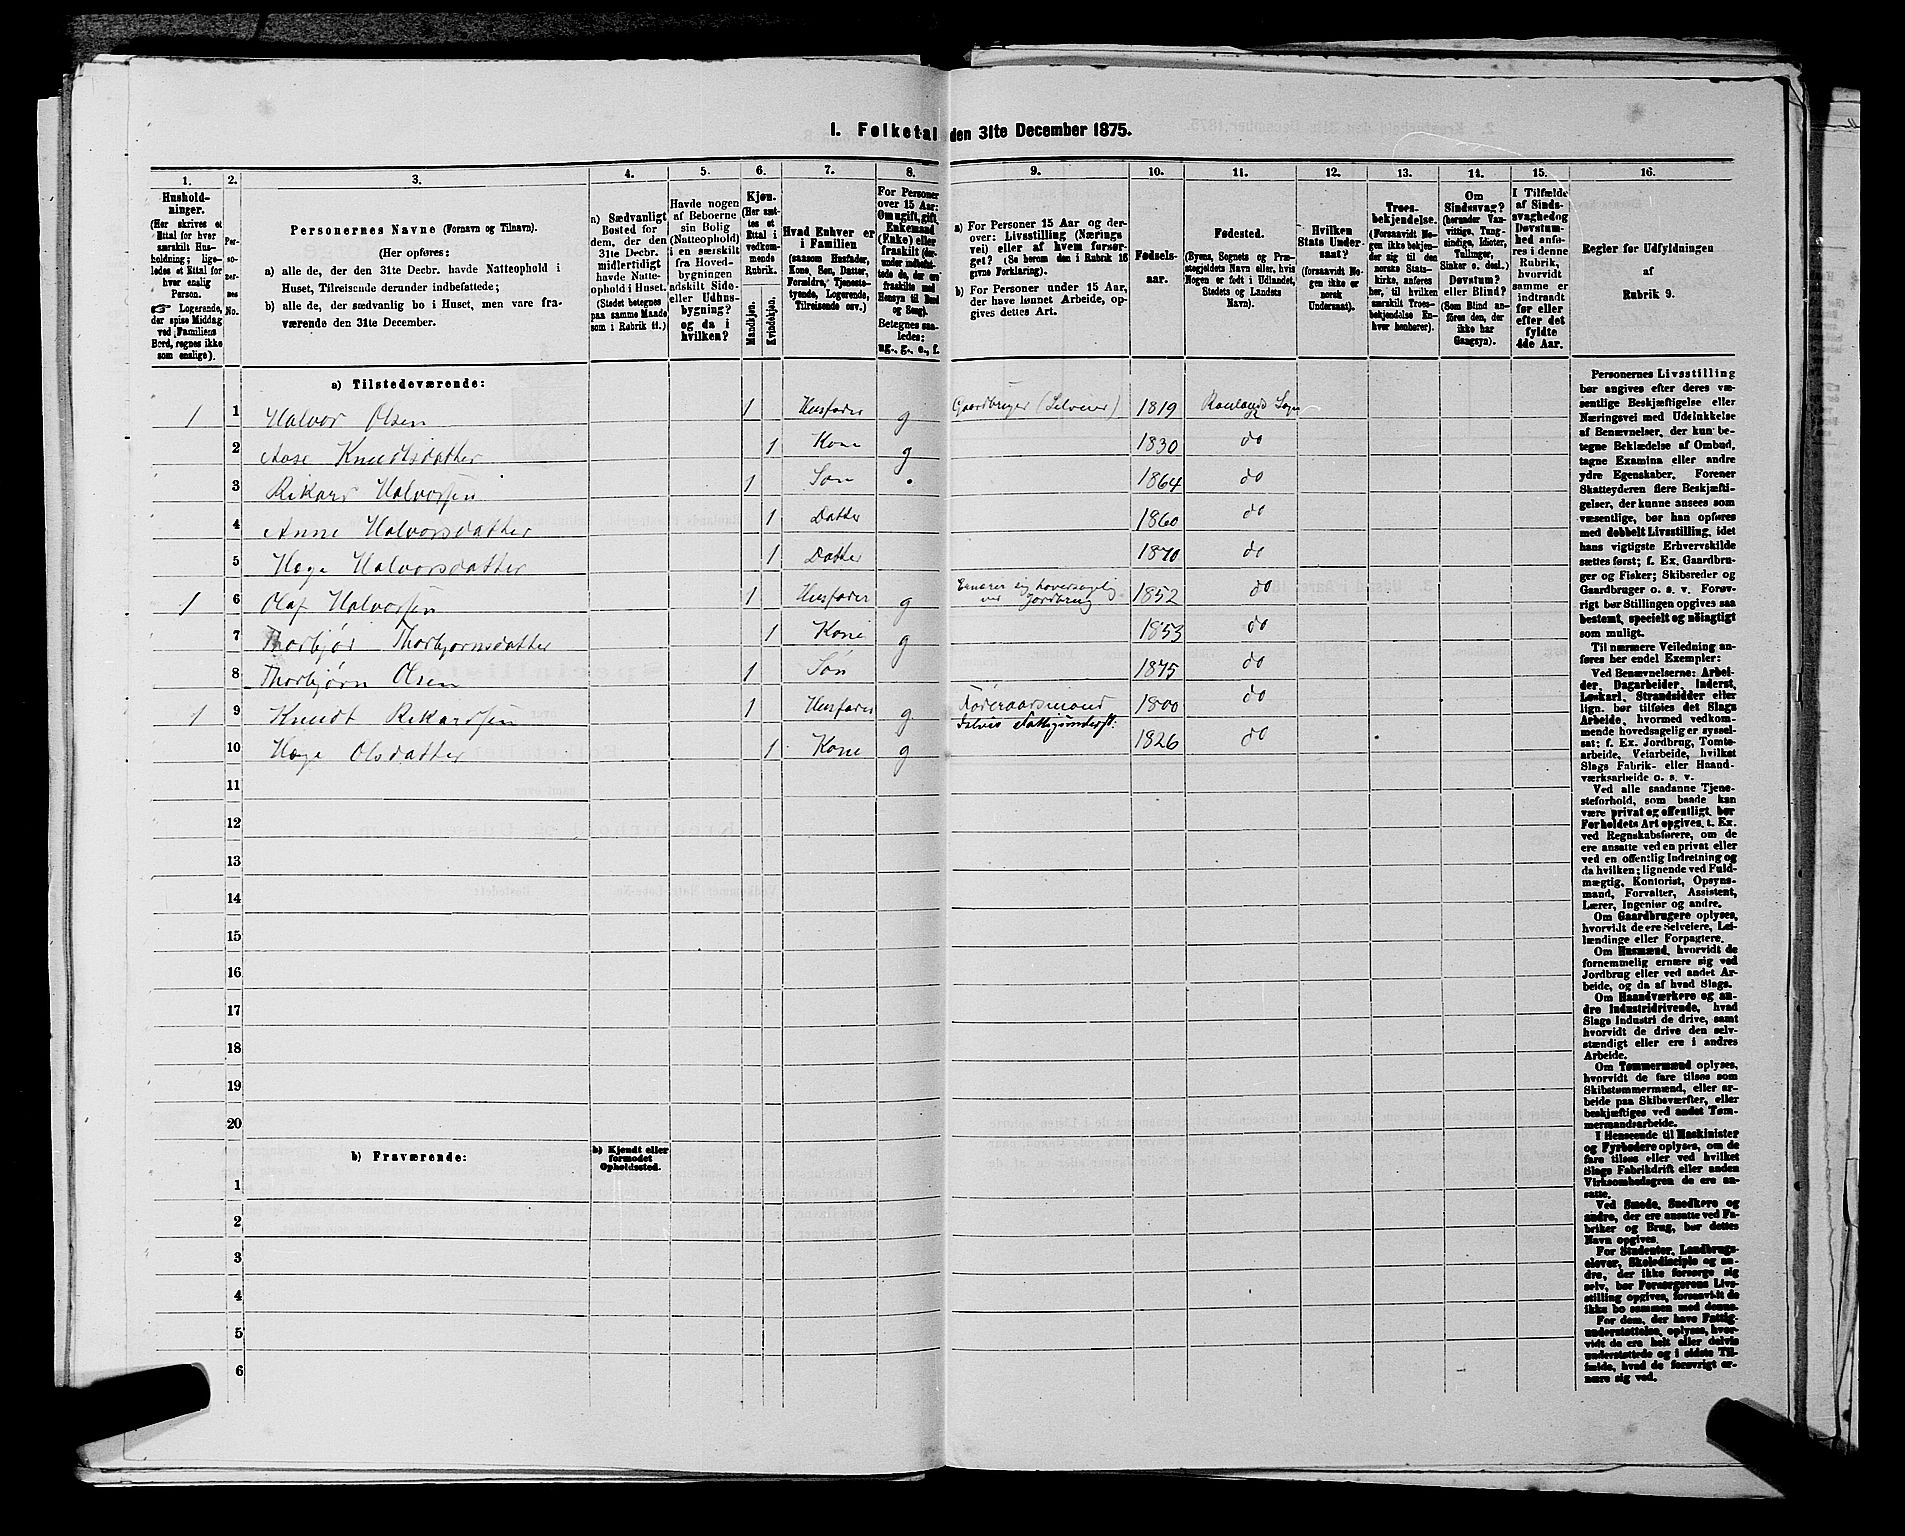 I. Folketal den 31te December 1875.
1. 2. 3. 4. 5. 6. 7. 8. 9. 10. 11. 12. 13. 14. 15. 16.
Hushold-
ninger.
(Her skrives et
Ettal for hver
særskilt Hus-
holdning; lige-
ledes et Ettal for
hver enslig
Person.
☞ Logerende,
der spise Middag
ved Familiens
Bord, regnes ikke
som enslige).
Per-
so-
ner-
nes
No.
Personernes Navne (Fornavn og Tilnavn).
(Her opføres:
a) alle de, der den 31te Decbr. havde Natteophold i
Huset, Tilreisende derunder indbefattede;
b) alle de, der sædvanlig bo i Huset, men vare fra-
værende den 31te December.
a) Sædvanligt
Bosted for
dem, der den
31te Decbr.
midlertidigt
havde Natte-
ophold i Huset.
(Stedet betegnes
paa samme Maade
som i Rubrik 11.)
Havde nogen
af Beboerne
sin Bolig
(Natteophold)
i en særskilt
fra Hoved-
bygningen
adskilt Side-
eller Udhus-
bygning?
og da i
hvilken?
Kjøn.
(Her sæt-
tes et
Ettal i
vedkom-
mende
Rubrik.
Mandkjøn.
Kvindekjøn.
Hvad Enhver er
i Familien
(saasom Husfader,
Kone, Søn, Datter,
Forældre, Tjeneste-
tyende, Logerende,
Tilreisende osv.)
For Personer
over 15 Aar:
Om ugift, gift,
Enkemand
(Enke) eller
fraskilt (her-
under indbefat-
tede de, der ere
fraskilte med
Hensyn til Bord
og Seng).
Betegnes saa-
ledes:
ug., g., e., f.
a) For Personer 15 Aar og der-
over: Livsstilling (Nærings-
vei) eller af hvem forsør-
get? (Se herom den i Rubrik 16
givne Forklaring).
b) For Personer under 15 Aar,
der have lønnet Arbeide, op-
gives dettes Art.
Fødsels-
aar.
Fødested.
(Byens, Sognets og Præ-
stegjeldets Navn eller, hvis
Nogen er født i Udlandet,
Stedets og Landets
Navn).
Hvilken
Stats Under-
saat?
(forsaavidt No-
gen ikke er
norsk
Undersaat).
Troes-
bekjendelse.
(Forsaavidt No-
gen ikke bekjen-
der sig til den
norske Stats-
kirke, anføres
her, til hvilken
særskilt Troes-
bekjendelse En-
hver henhører).
Om
Sindssvag?
(herunder Van-
vittige, Tung-
sindige, Idioter,
Tullinger,
Sinker o. desl.)
Døvstum?
eller Blind?
(Som Blind an-
føres den, der
ikke har
Gangsyn).
I Tilfælde
af Sinds-
svaghed og
Døvstum-
hed anfø-
res i denne
Rubrik,
hvorvidt
samme er
indtraadt
før eller
efter det
fyldte
4de Aar.
Regler for Udfyldningen
af
Rubrik 9.
a) Tilstedeværende:
1 1 Halvor Olsen 1 Husfader g Gaardbruger (Selveier) 1819 Raulands Sogn
2 Aase Knudtsdatter 1 Kone g 1830 do
3 Rikard Halvorsen 1 Søn 1864 do
4 Anne Halvorsdatter 1 Datter 1860 do
5 Hæge Halvorsdatter 1 Datter 1870 do
1 6 Olaf Halvorsen 1 Husfader g Ernærer sig hovedsagelig
ved Jordbrug 1852 do
7 Thorbjør Thorbjørnsdatter 1 Kone g 1853 do
8 Thorbjørn Olsen 1 Søn 1875 do
1 9 Knudt Rikardsen 1 Husfader g Føderaadsmand
delvis Fattigunderst. 1800 do
10 Hæge Olsdatter 1 Kone g 1826 do
11
12
13
14
15
16
17
18
19
20
b) Fraværende:
b) Kjendt eller
formodet
Opholdssted.
1
2
3
4
5
6
Personernes Livsstilling
bør angives efter deres væ-
sentlige Beskjæftigelse eller
Næringsvei med Udelukkelse
af Benævnelser, der kun be-
tegne Beklædelse af Ombud,
tagne Examina eller andre
ydre Egenskaber. Forener
Skatteyderen flere Beskjæfti-
gelser, der kunne ansees som
væsentlige, bør han opføres
med dobbelt Livsstilling, idet
hans vigtigste Erhvervskilde
sættes først; f. Ex. Gaardbru-
ger og Fisker; Skibsreder og
Gaardbruger o. s. v. Forøv-
rigt bør Stillingen opgives saa
bestemt, specielt og nøiagtigt
som muligt.
Til nærmere Veiledning an-
føres her endel Exempler:
Ved Benævnelserne: Arbei-
der, Dagarbeider, Inderst,
Løskarl, Strandsidder eller
lign. bør tilføies det Slags
Arbeide, hvormed vedkom-
mende hovedsagelig er syssel-
sat; f. Ex. Jordbrug, Tomte-
arbeide, Veiarbeide, hvilket
Slags Fabrik- eller Haand-
værksarbeide o. s. v.
Ved alle saadanne Tjene-
steforhold, som baade kan
være privat og offentligt, bør
Forholdets Art opgives, t. Ex.
ved Regnskabsførere, om de
ere ansatte ved en privat eller
ved en offentlig Indretning og
da hvilken; lignende ved Fuld-
mægtig, Kontorist, Opsyns-
mand, Forvalter, Assistent,
Lærer, Ingeniør og andre.
Om Gaardbrugere oplyses,
hvorvidt de ere Selveiere, Lei-
lændinge eller Forpagtere.
Om Husmænd, hvorvidt de
fornemmelig ernære sig ved
Jordbrug eller ved andet Ar-
beide, og da af hvad Slags.
Om Haandværkere og an-
dre Industridrivende, hvad
Slags Industri de drive, samt
hvorvidt de drive den selv-
stændigt eller ere i andres
Arbeide.
Om Tømmermænd oplyses,
hvorvidt de fare tilsøs som
Skibstømmermænd, eller ar-
beide paa Skibsværfter, eller
beskjæftiges ved andet Tøm-
mermandsarbeide.
I Henseende til Maskinister
og Fyrbødere oplyses, om de
fare tilsøs eller ved hvilket
Slags Fabrikdrift eller anden
Virksomhedsgren de ere an-
satte.
Ved Smede, Snedkere og
andre, der ere ansatte ved Fa-
briker og Brug, bør dettes
Navn opgives.
For Studenter, Landbrugs-
elever, Skoledisciple og an-
dre, der ikke forsørge sig
selv, bør Forsørgerens Live-
stilling opgives, forsaavidt de
ikke bo sammen med denne.
For dem, der have Fattig-
understøttelse, oplyses, hvor-
vidt de ere helt eller delvis
understøttede og i sidste Til-
fælde, hvad de forøvrigt er-
nære sig ved.